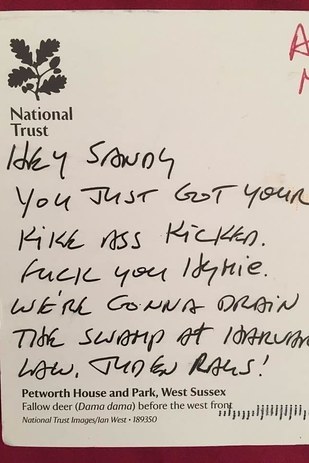 A
National
Trust
HEY SANDY
YOU JUST GOT YOUR
KIKE ASS KICKED.
FUCK YOU HYMIE.
WE'RE GONNA DRAIN
THE SWAMP AT HARVAR
LAW. JUDEN RAUS!
Petworth House and Park, West Sussex
Fallow deer (Dama dama) before the west front
National Trust Images/Ian West • 189350